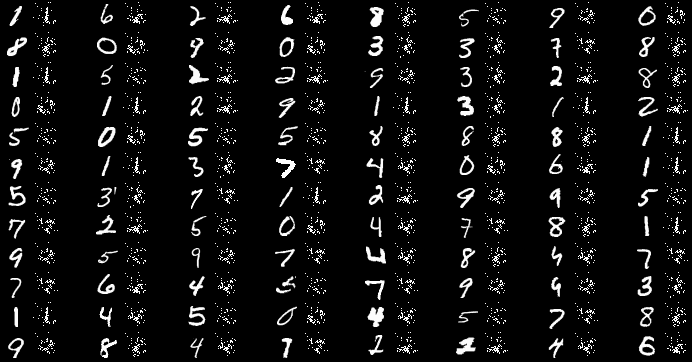 1 6 2 6 8 5 9 0
8 0 9 0 3 3 7 8
1 5 2 2 9 3 2 8
0 1 2 9 1 3 1 2
5 0 5 5 8 8 8 1
9 1 3 7 4 0 6 1
5 3 7 1 2 9 9 5
7 2 5 0 4 7 8 1
9 5 9 7 4 8 4 7
7 6 4 5 7 9 4 3
1 4 5 0 4 5 7 8
9 8 4 1 2 2 4 6